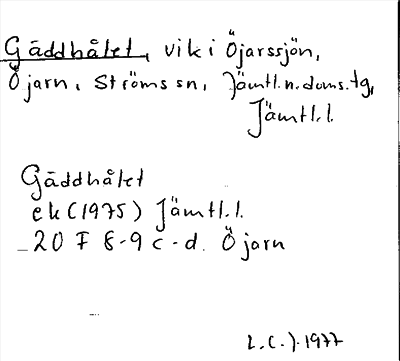 Gäddhålet, vik i Öjarssjön,
Öjarn, Ströms sn, Jämtl.n.doms.tg,
Jämtl.l.
Gäddhålet
ek (1975) Jämtl.l.
20 F 8-9 c-d. Öjarn
L.C.J. 1977